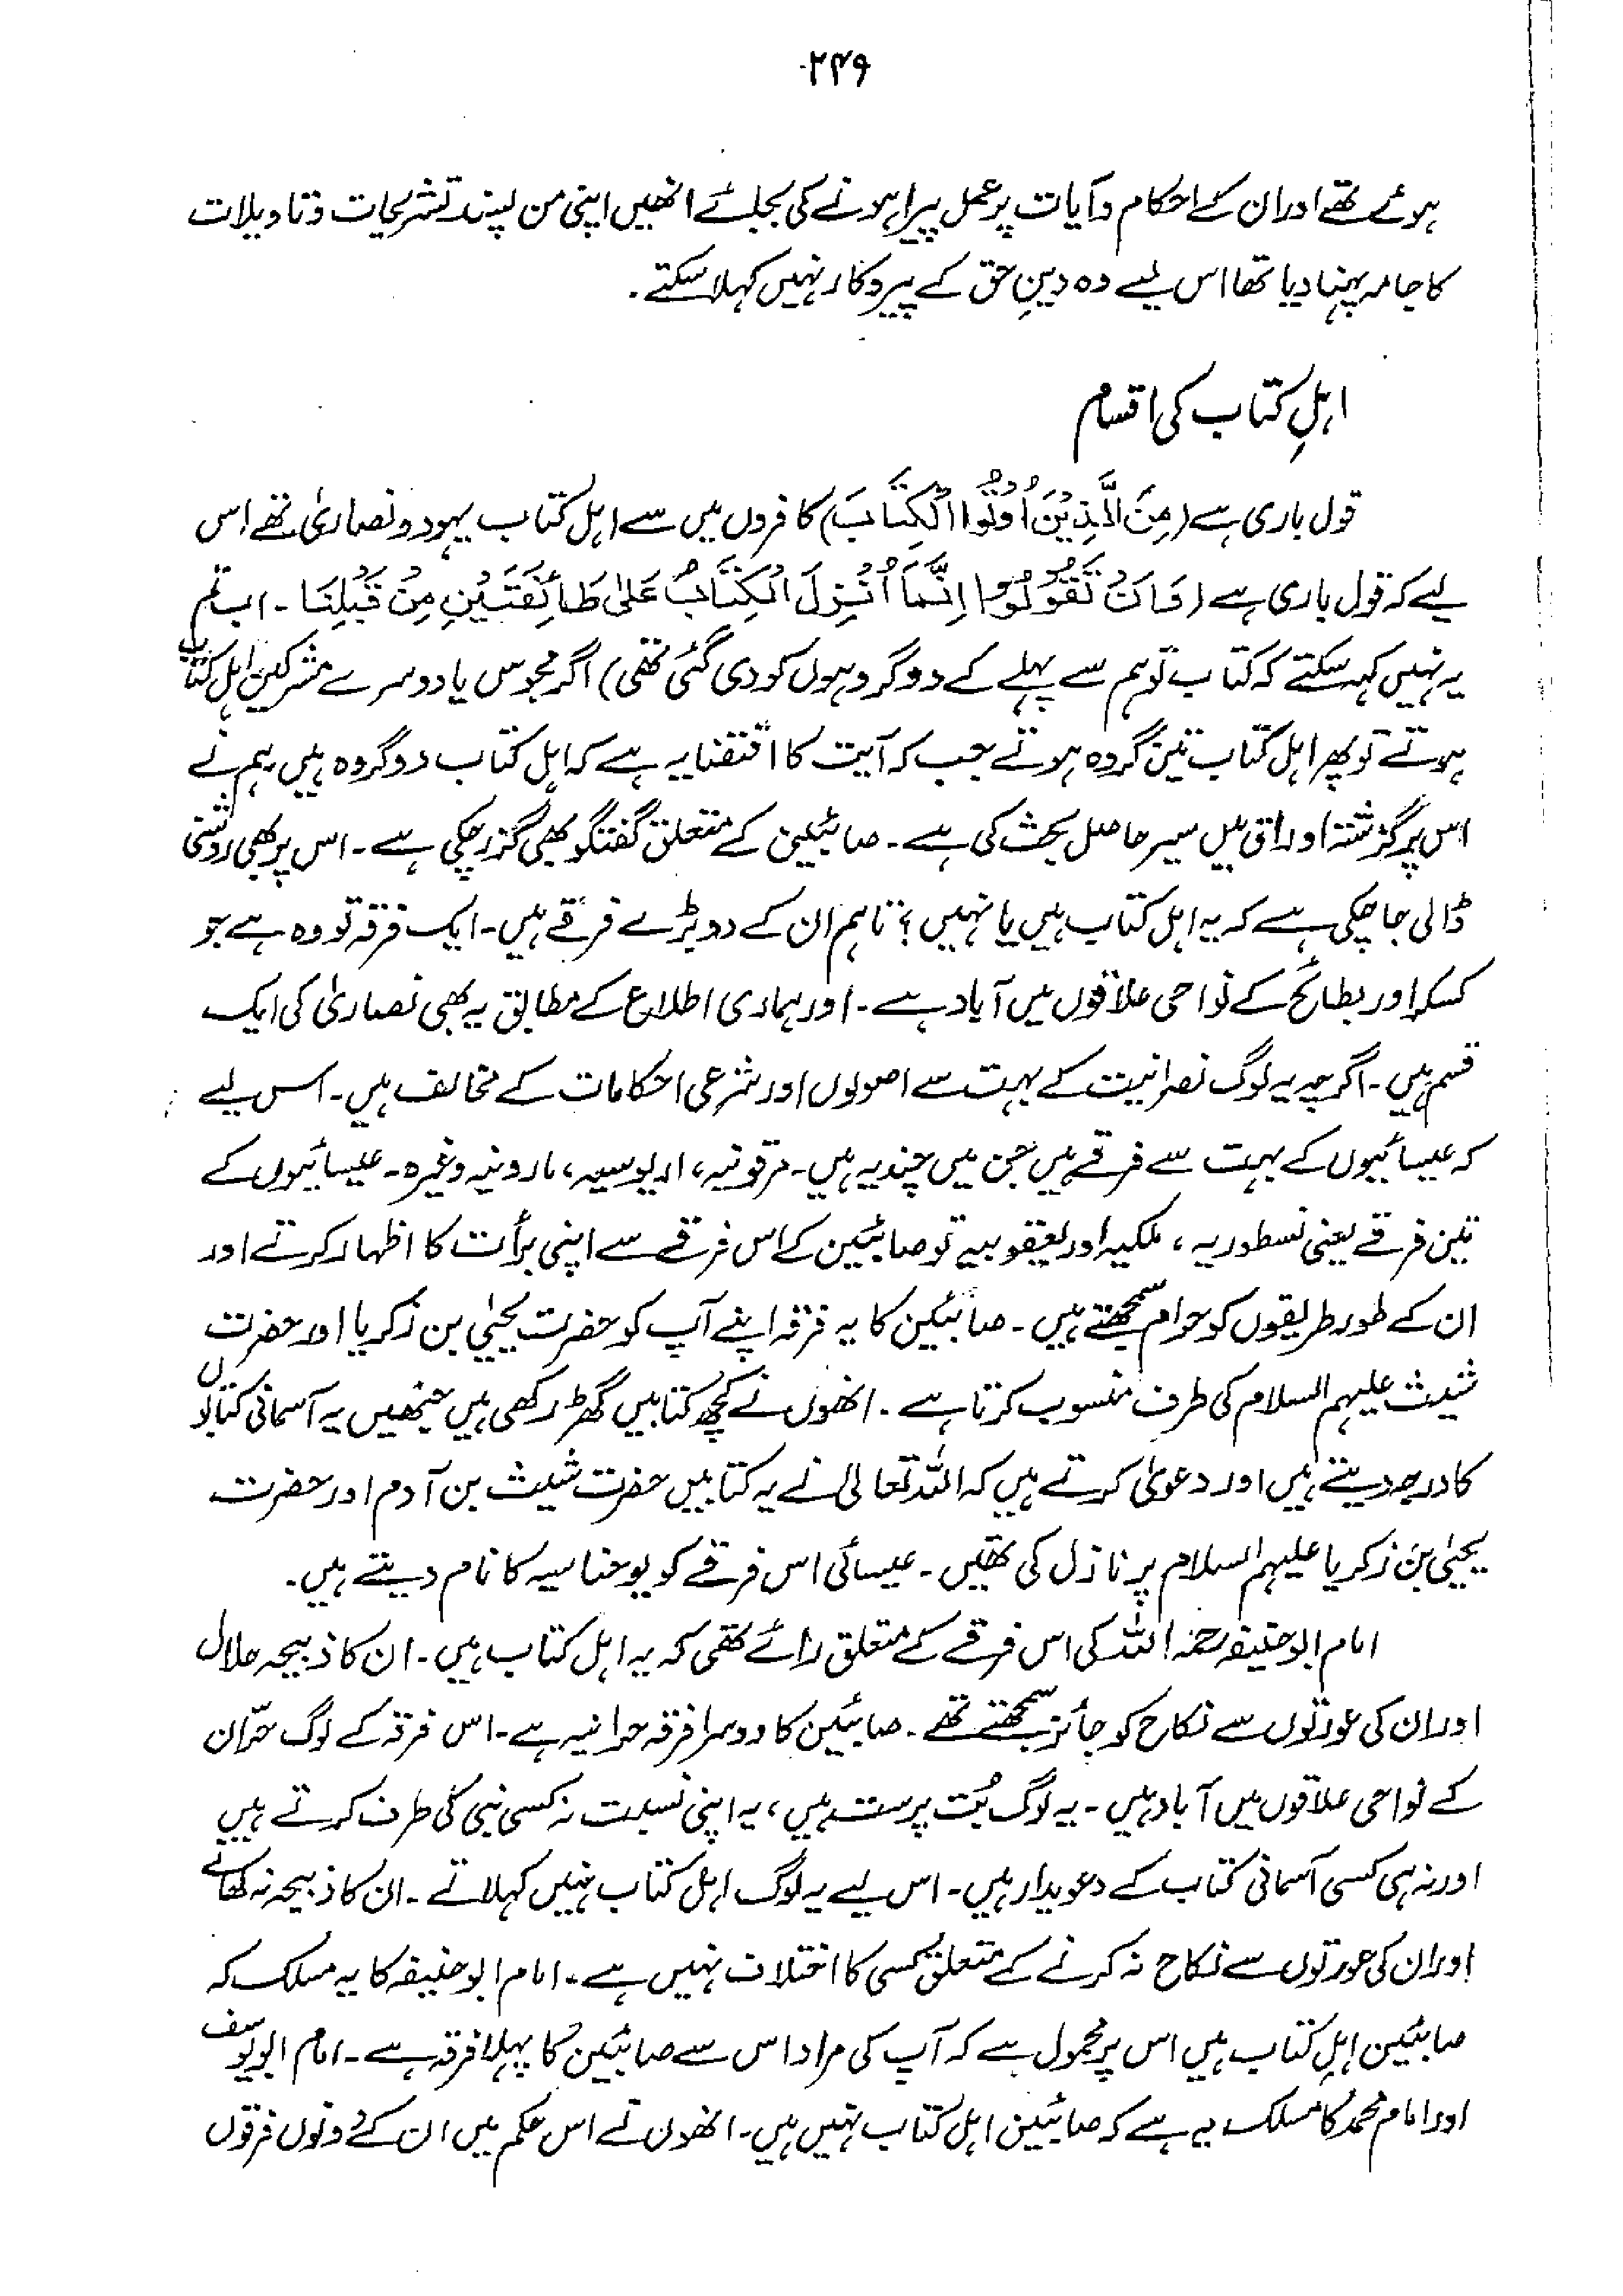 ۲۴۹
ہوئے تھے اور ان کے احکام و آیات پر عمل پیرا ہونے کی بجائے انھیں اپنی من پسند تشریحات و تاویلات
کا جامہ پہنا دیا تھا اس لیے وہ دینِ حق کے پیروکار نہیں کہلا سکتے۔
اہلِ کتاب کی اقسام
قول باری ہے (مِنَ الَّذِیْنَ اُوْتُوا الْکِتَابَ) کافروں میں سے اہل کتاب یہود و نصاریٰ تھے اس
لیے کہ قول باری ہے (اَنْ تَقُوْلُوْا اِنَّمَا اُنْزِلَ الْکِتَابُ عَلٰی طَائِفَتَیْنِ مِنْ قَبْلِنَا۔ اب تم
یہ نہیں کہہ سکتے کہ کتاب تو ہم سے پہلے کے دو گروہوں کو دی گئی تھی) اگر مجوس یا دوسرے مشرکین اہل کتاب
ہوتے تو پھر اہل کتاب تین گروہ ہوتے جب کہ آیت کا اقتضا یہ ہے کہ اہل کتاب دو گروہ ہیں ہم نے
اس پر گزشتہ اوراق میں سیر حاصل بحث کی ہے۔ صابئین کے متعلق گفتگو بھی گزر چکی ہے۔ اس پر بھی روشنی
ڈالی جا چکی ہے کہ یہ اہل کتاب ہیں یا نہیں؟ تاہم ان کے دو بڑے فرقے ہیں۔ ایک فرقہ تو وہ ہے جو
کسکر اور بطائح کے نواحی علاقوں میں آباد ہے۔ اور ہماری اطلاع کے مطابق یہ بھی نصاریٰ کی ایک
قسم ہیں۔ اگرچہ یہ لوگ نصرانیت کے بہت سے اصولوں اور شرعی احکامات کے مخالف ہیں۔ اس لیے
کہ عیسائیوں کے بہت سے فرقے ہیں جن میں چند یہ ہیں۔ مرقونیہ، اریوسیہ، مارونیہ وغیرہ۔ عیسائیوں کے
تین فرقے یعنی نسطوریہ، ملکیہ اور یعقوبیہ تو صابئین کے اس فرقے سے اپنی برأت کا اظہار کرتے اور
ان کے طور طریقوں کو حرام سمجھتے ہیں۔ صابئین کا یہ فرقہ اپنے آپ کو حضرت یحییٰ بن زکریا اور حضرت
شیث علیہم السلام کی طرف منسوب کرتا ہے۔ انھوں نے کچھ کتابیں گھڑ رکھی ہیں جنھیں یہ آسمانی کتابوں
کا درجہ دیتے ہیں اور دعویٰ کرتے ہیں کہ اللہ تعالیٰ نے یہ کتابیں حضرت شیث بن آدم اور حضرت
یحییٰ بن زکریا علیہم السلام پر نازل کی تھیں۔ عیسائی اس فرقے کو یوحناسیہ کا نام دیتے ہیں۔
امام ابو حنیفہ رحمہ اللہ کی اس فرقے کے متعلق رائے تھی کہ یہ اہل کتاب ہیں۔ ان کا ذبیحہ حلال
اور ان کی عورتوں سے نکاح کو جائز سمجھتے تھے۔ صابئین کا دوسرا فرقہ حرانیہ ہے۔ اس فرقہ کے لوگ حرّان
کے نواحی علاقوں میں آباد ہیں۔ یہ لوگ بُت پرست ہیں، یہ اپنی نسبت نہ کسی نبی کی طرف کرتے ہیں
اور نہ ہی کسی آسمانی کتاب کے دعویدار ہیں۔ اس لیے یہ لوگ اہل کتاب نہیں کہلاتے۔ ان کا ذبیحہ نہ کھانے
اور ان کی عورتوں سے نکاح نہ کرنے کے متعلق کسی کا اختلاف نہیں ہے۔ امام ابو حنیفہ کا یہ مسلک کہ
صابئین اہلِ کتاب ہیں اس پر محمول ہے کہ آپ کی مراد اس سے صابئین کا پہلا فرقہ ہے۔ امام ابو یوسف
اور امام محمدؒ کا مسلک یہ ہے کہ صابئین اہل کتاب نہیں ہیں۔ انھوں نے اس حکم میں ان کے دونوں فرقوں